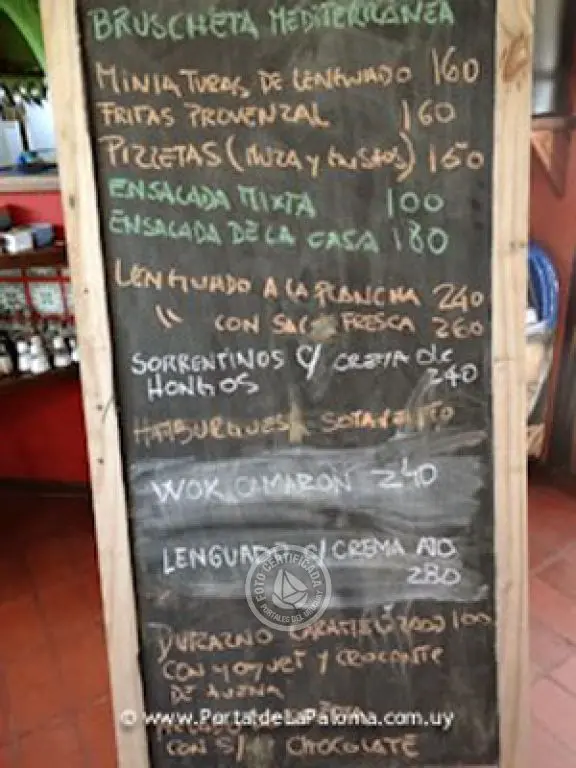 BRUSCHETA MEDITERRANEA
MINIATURAS DE LENGUADO 160
FRITAS PROVENZAL 160
PIZZETAS (MUZA y GUSTOS) 150
ENSALADA MIXTA 100
ENSALADA DE LA CASA 180
LENGUADO A LA PLANCHA 240
" CON SALSA FRESCA 260
SORRENTINOS C/ CREMA DE
HONGOS 240
HAMBURGUESA SOTAVENTO
WOK CAMARON 240
LENGUADO C/ CREMA AJO
280
DURAZNO CARAMELIZADO 100
CON YOGUET Y CROCANTE
DE AVENA
HELADO
CON S/ CHOCOLATE
FOTO CERTIFICADA
PORTALES DEL URUGUAY
© www.PortaldeLaPaloma.com.uy